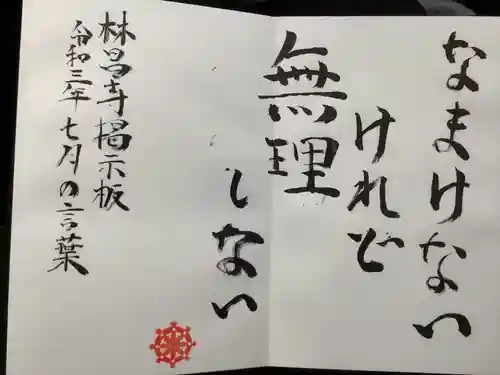 なまけない
けれど
無理
しない
林昌寺掲示板
令和三年 七月の言葉